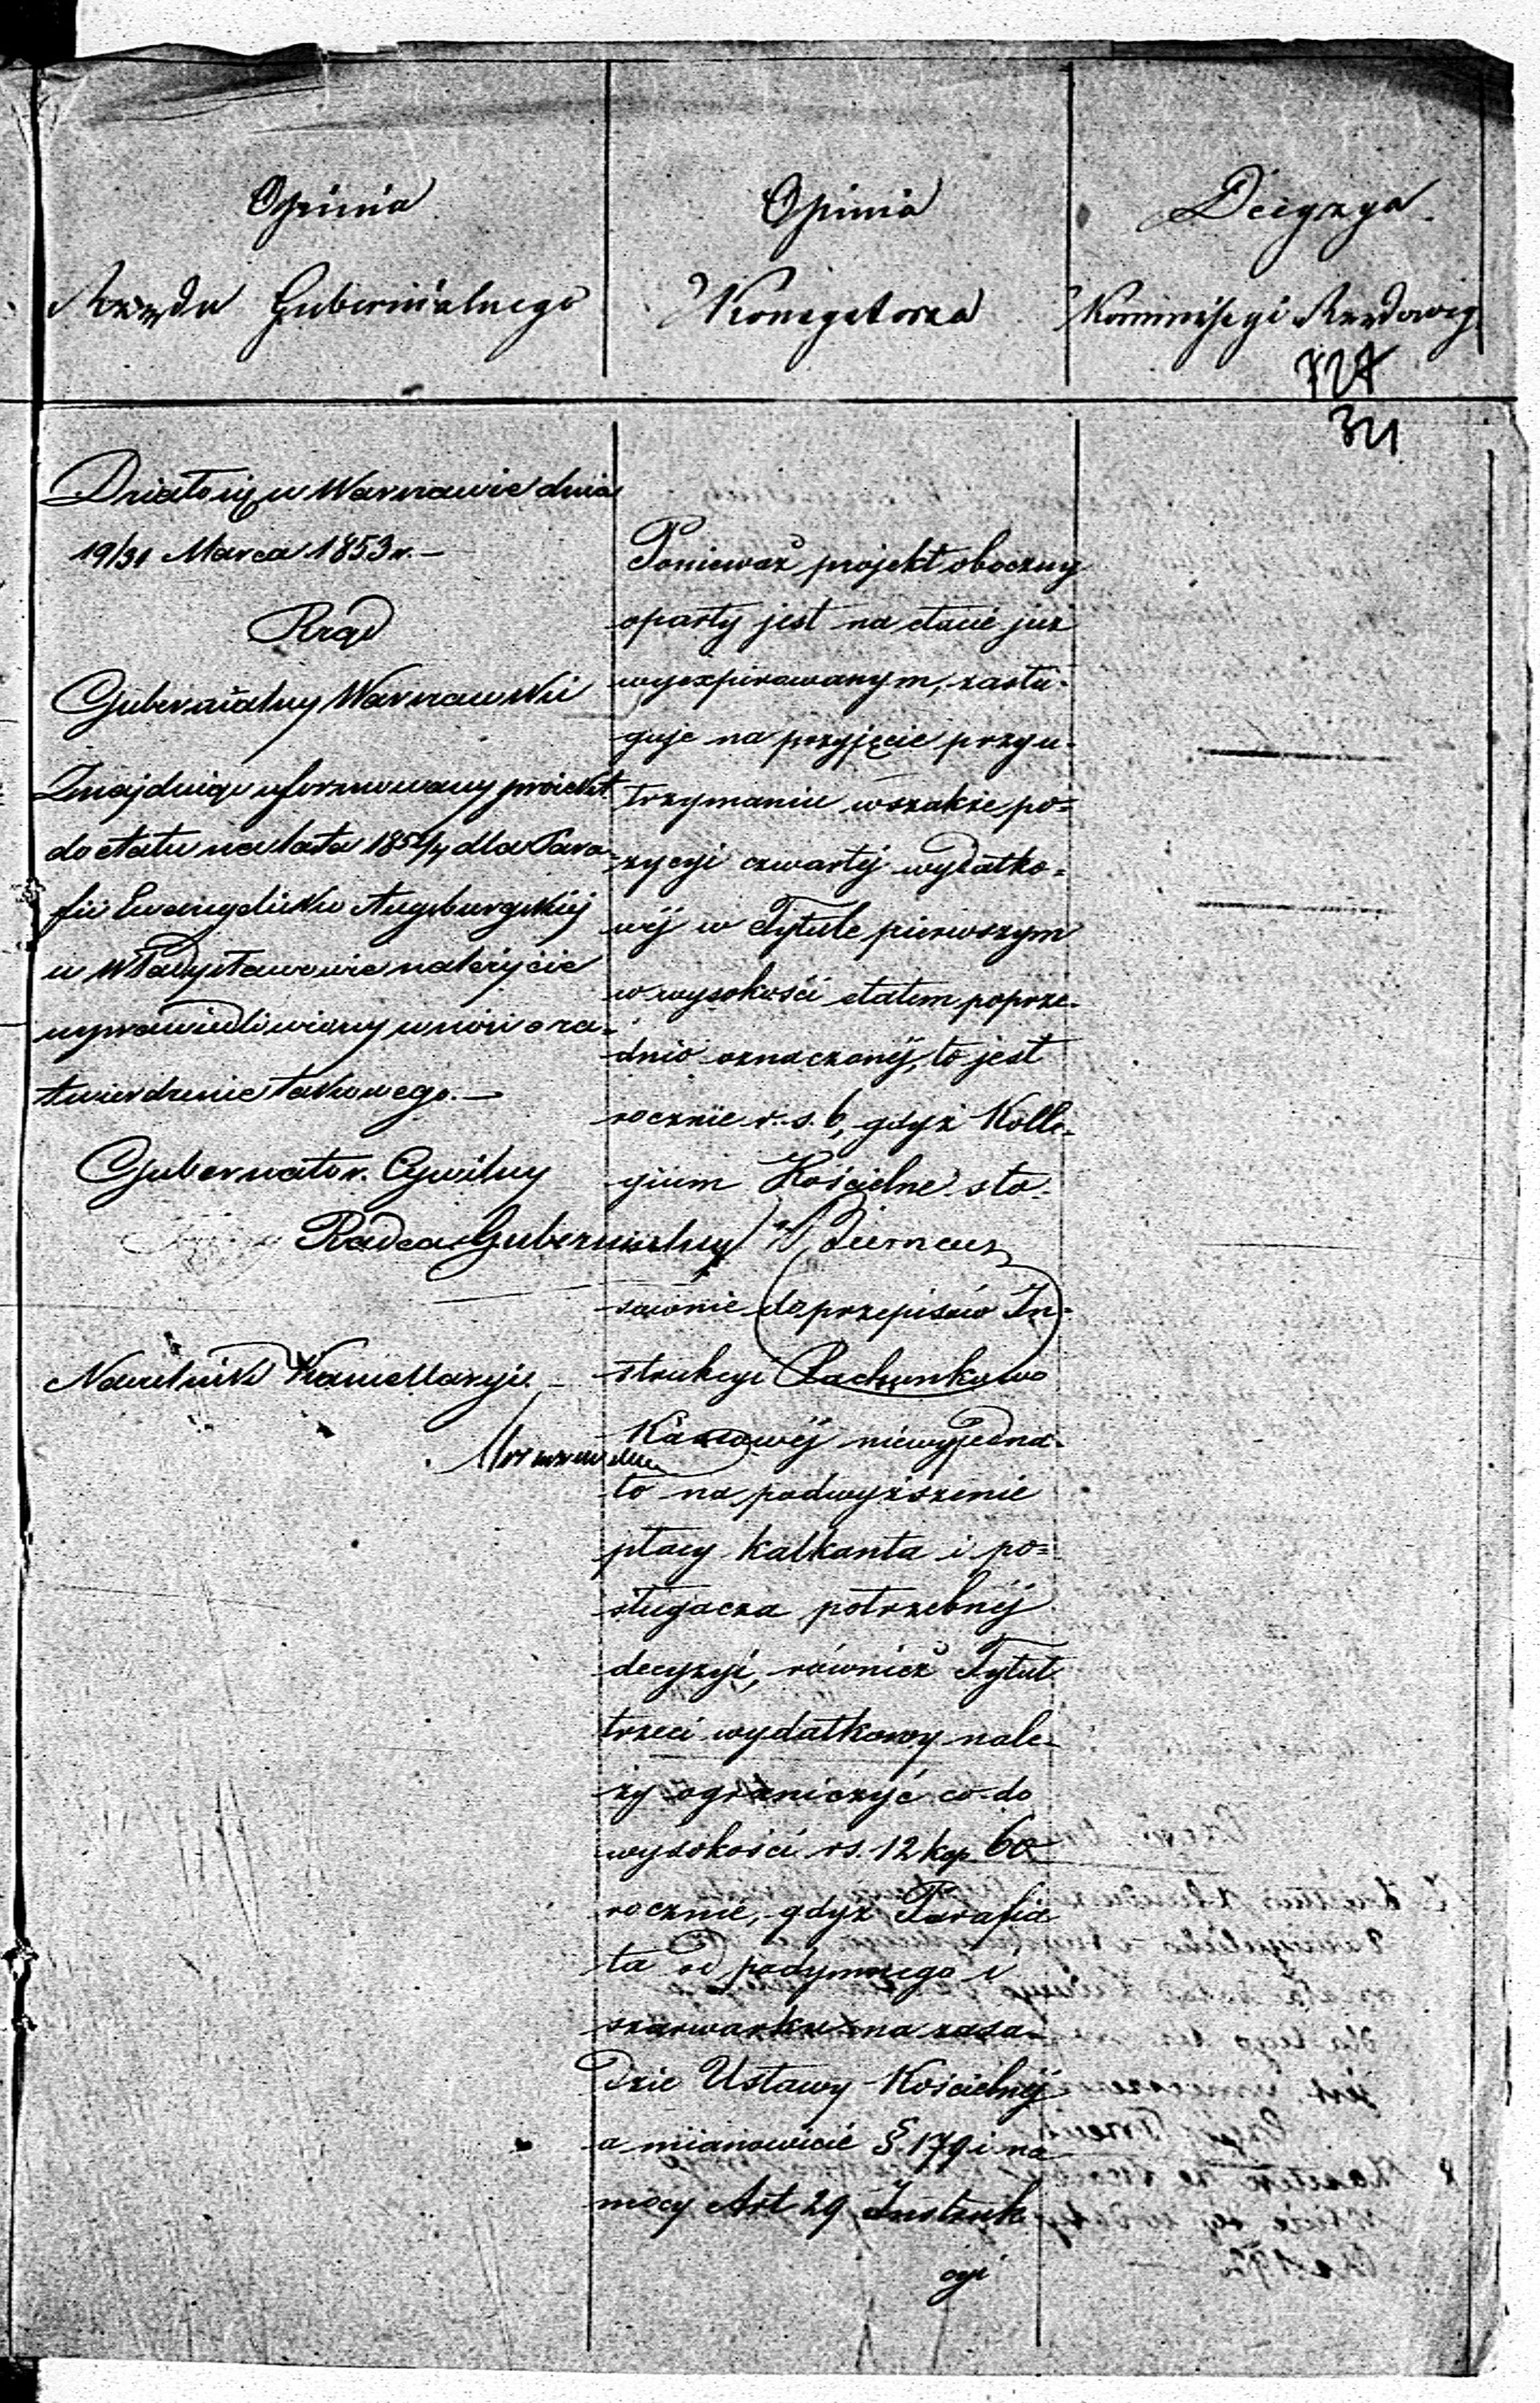 Opinia
Rządu Gubernialnego
Opinia
Konsystorza
Decyzya
Kommissyi Rządowej
727
34
Działo się w Warszawie dnia
19/31 Marca 1853 r. —
Rząd
Gubernialny Warszawski
Znajdując uformowany proiekt
do etatu na lata 185 dla Para-
fii Ewangelicko Augsburgskiej
w Władysławowie należycie
usprawiedliwiony wnosi o za-
twierdzenie takowego. —
Gubernator Cywilny
Radca Gubernialny
Naczelnik Kancellaryi
Ponieważ projekt oboczny
oparty jest na etacie już
wyexpirowanym, zasłu-
guje na przyjęcie przy u-
trzymaniu wszakże po-
zycyi czwartej wydatko-
wéj w Tytule pierwszym
w wysokości etatem poprze-
dnio oznaczonéj, to jest
rocznie r. s. 6, gdyż Kolle-
gium Kościelne sto-
sownie do przepisów In-
strukcyi Rachunkowo
Kassowéj niewyjedna-
ło na podwyższenie
płacy kalkanta i po-
sługacza potrzebnéj
decyzyi, również Tytuł
trzeci wydatkowy nale-
ży ograniczyć co do
wysokości rs. 12 kop 60
rocznie, gdyż Parafia
ta od podymnego i
szarwarku na zasa-
dzie Ustawy Kościelnéj
a mianowicie § 179 i na
mocy Art 29 Instruk
cyi